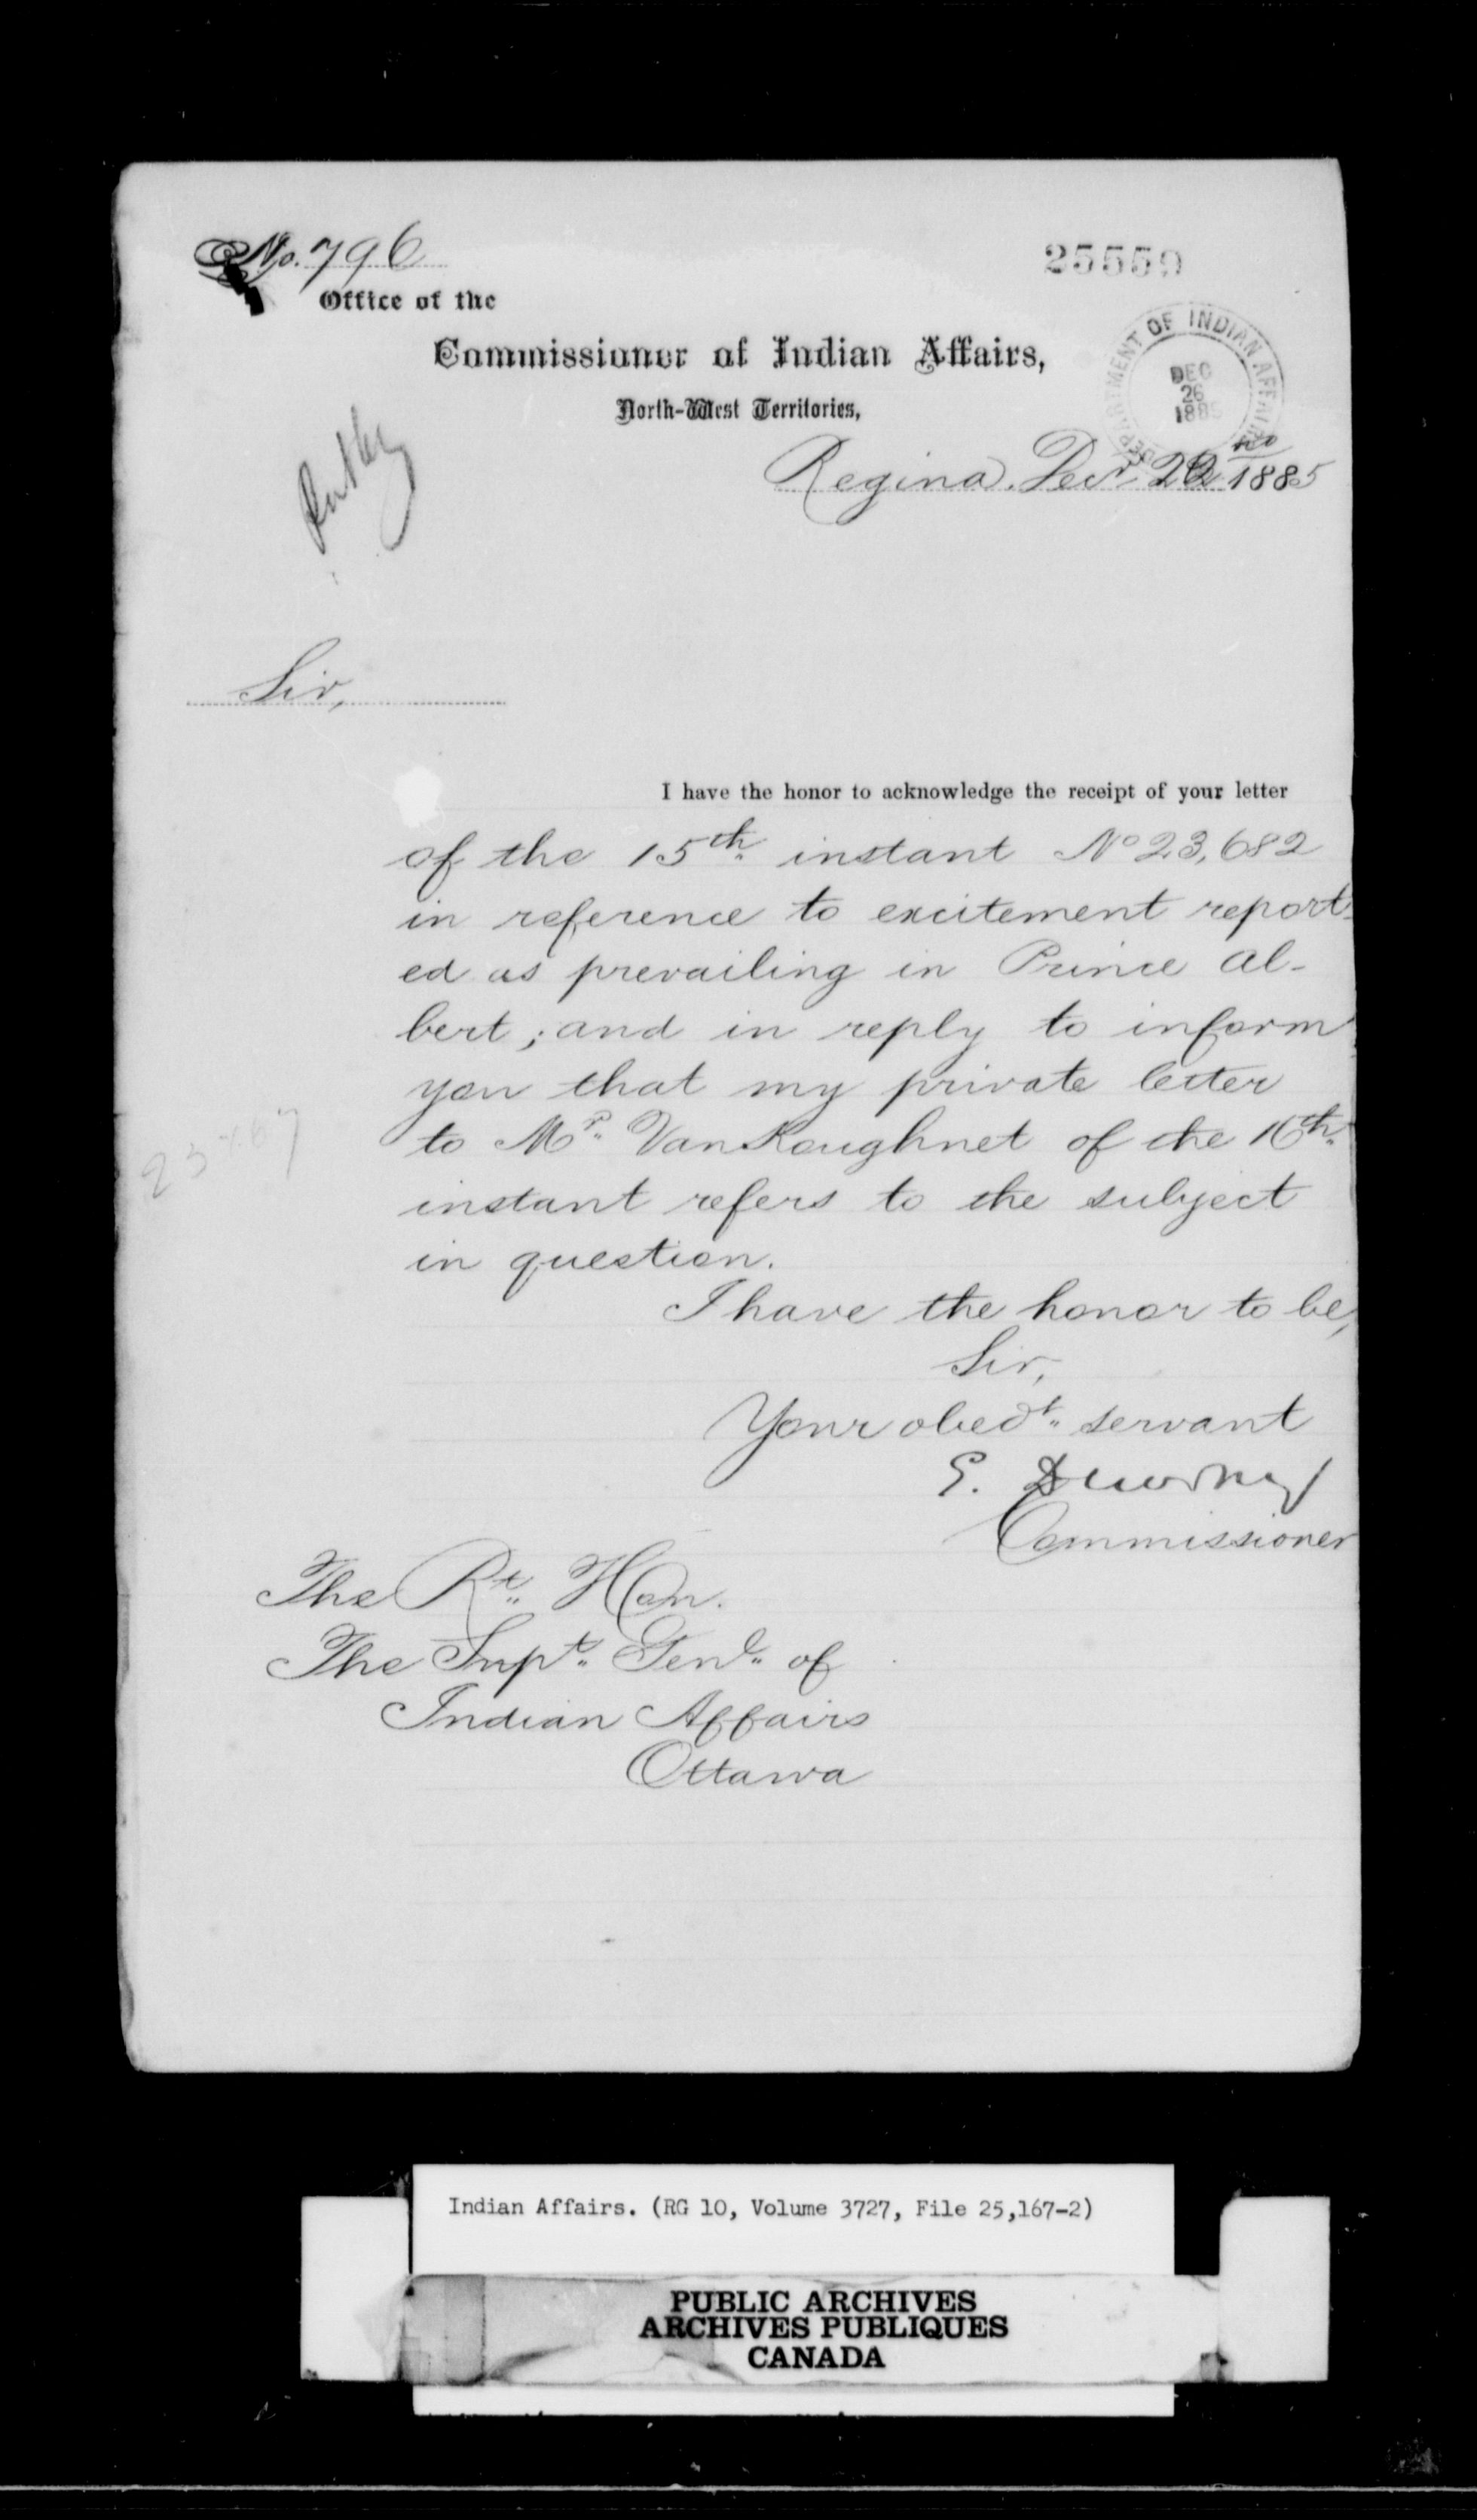 No. 796
25559
Office of the
Commissioner of Indian Affairs,
North-West Territories,
DEPARTMENT OF INDIAN AFFAIRS
DEC
26
1885
Regina. Decr. 22nd 1885
Sir,
I have the honor to acknowledge the receipt of your letter
of the 15th. instant No 23,682
in reference to excitement report-
ed as prevailing in Prince Al-
bert; and in reply to inform
you that my private letter
to Mr. VanKoughnet of the 16th.
instant refers to the subject
in question.
I have the honor to be,
Sir,
Your obedt. servant
E. Dewdney
Commissioner
The Rt. Hon.
The Supt. Genl. of
Indian Affairs
Ottawa
Indian Affairs. (RG 10, Volume 3727, File 25,167-2)
PUBLIC ARCHIVES
ARCHIVES PUBLIQUES
CANADA